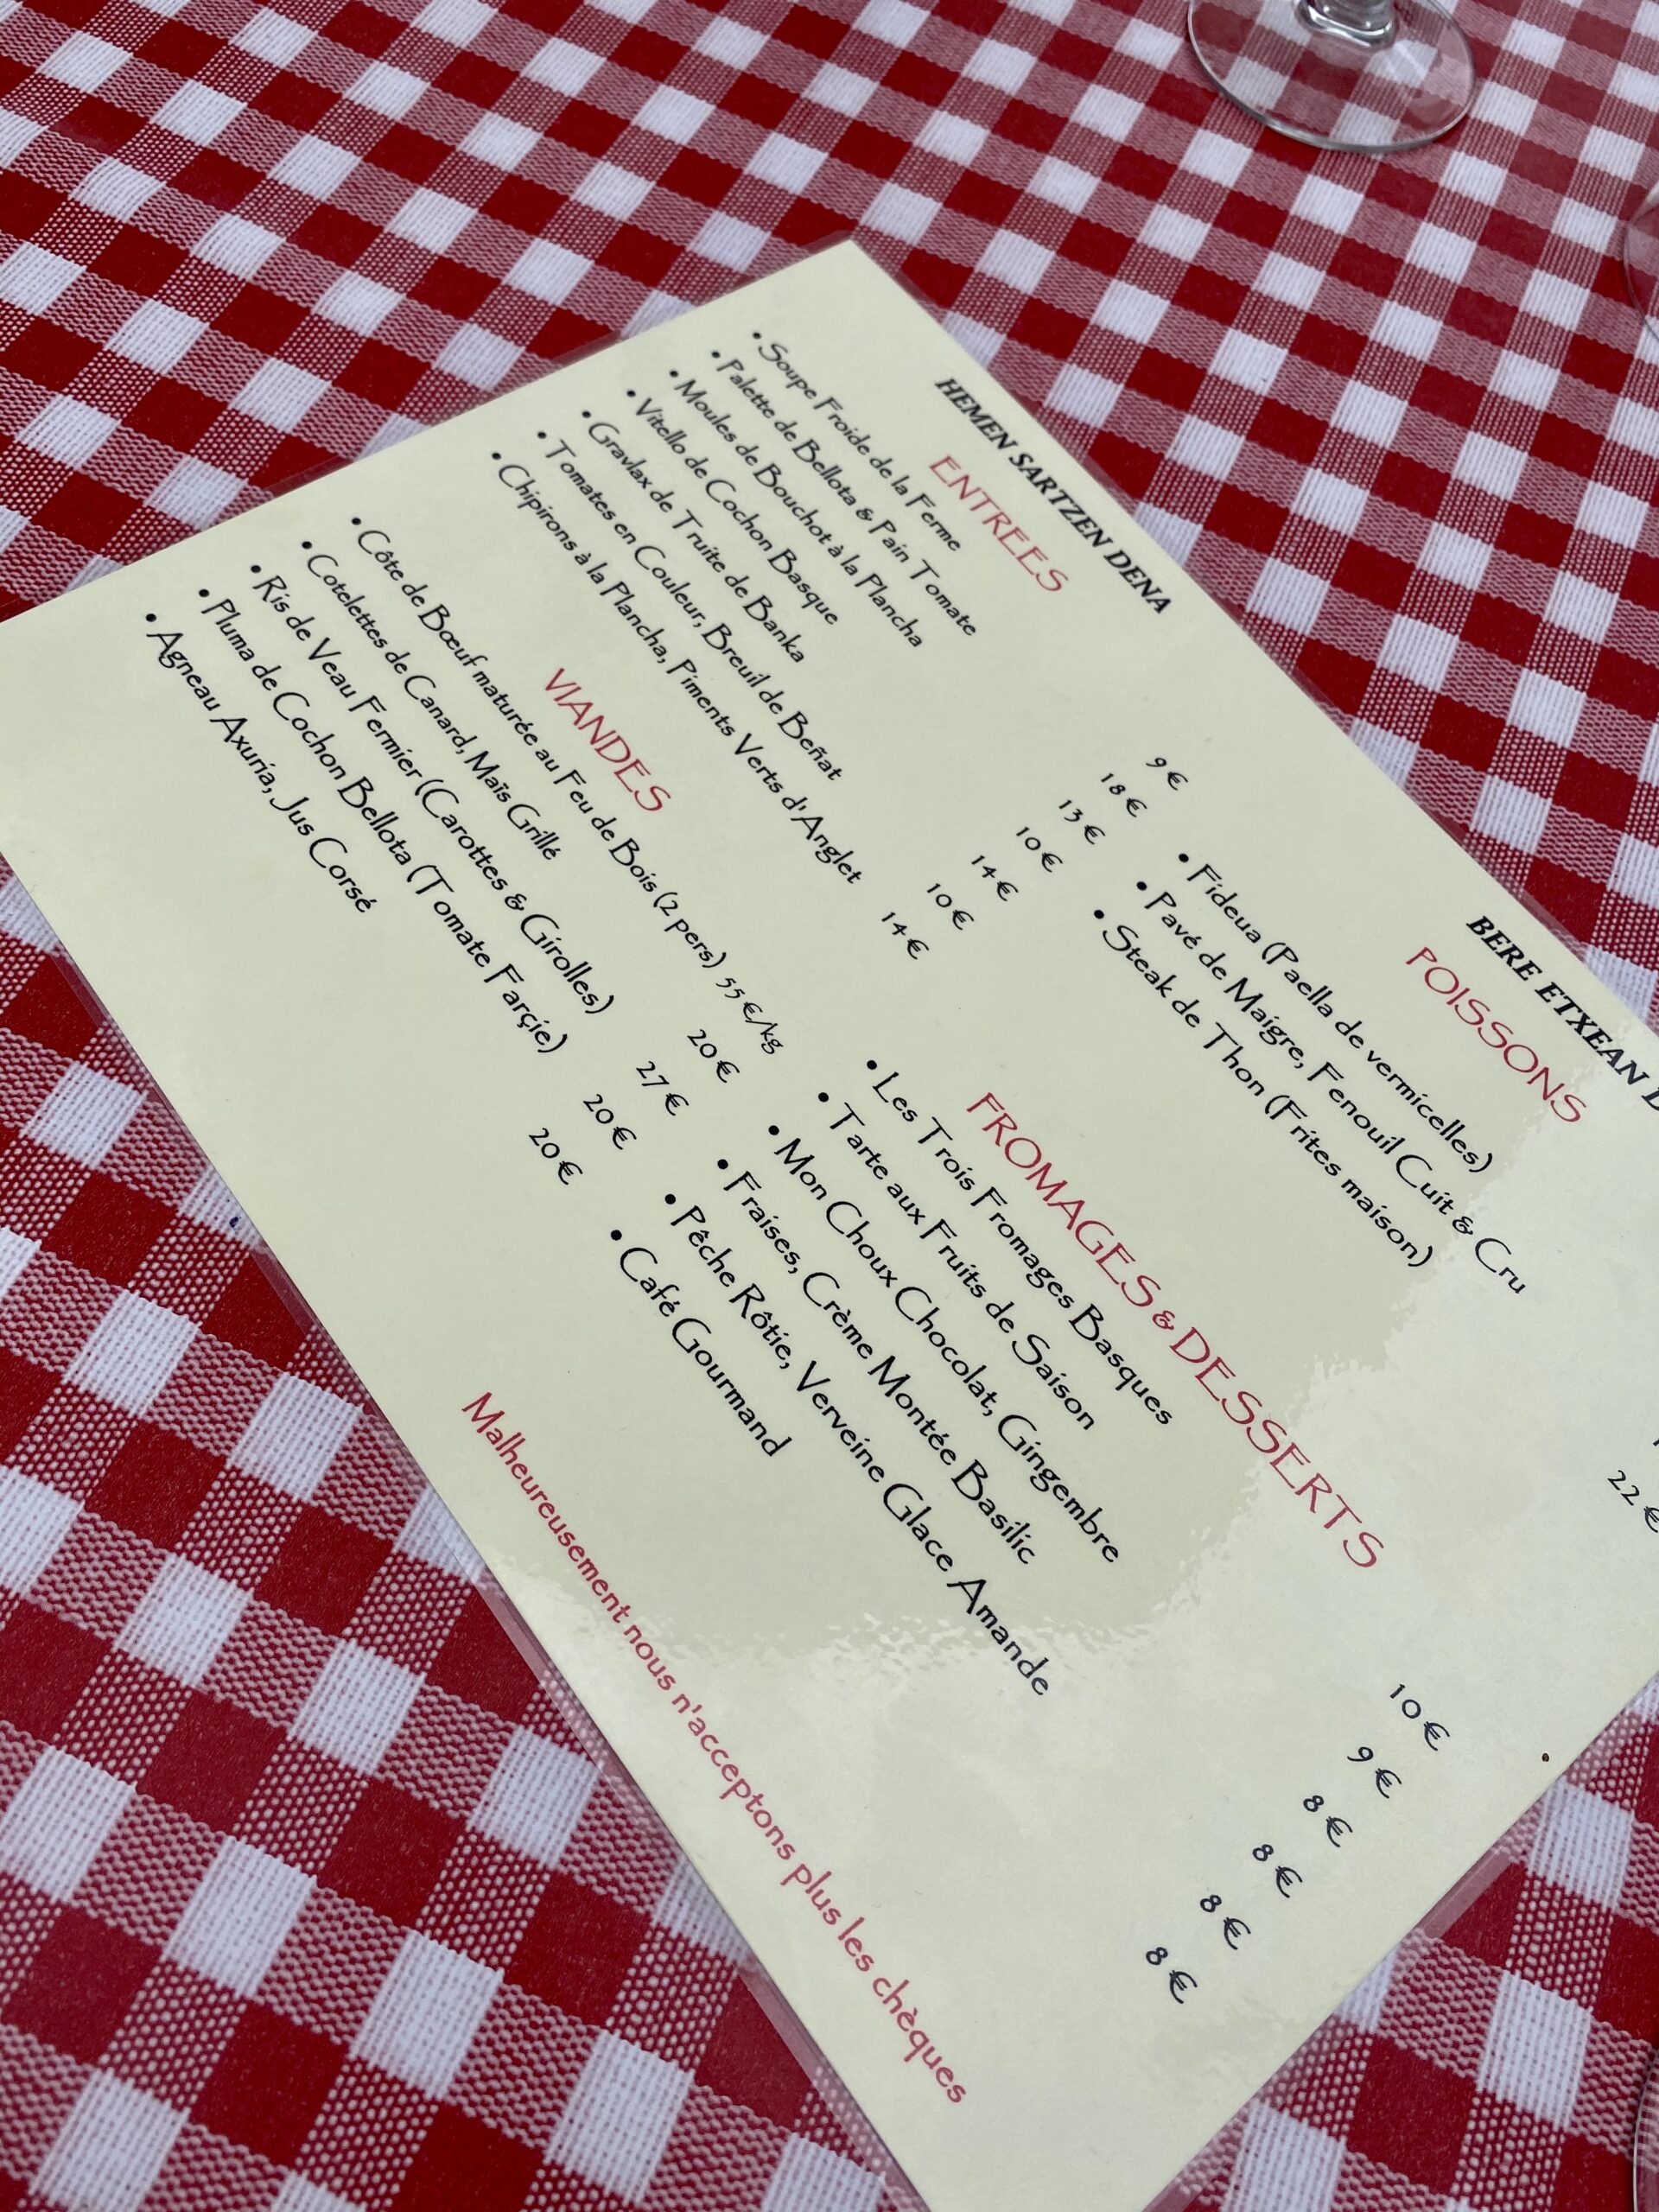 HEMEN SARTZEN DENA
ENTREES
• Soupe Froide de la Ferme 9 €
• Palette de Bellota & Pain Tomate 18 €
• Moules de Bouchot à la Plancha 13 €
• Vitello de Cochon Basque 10 €
• Gravlax de Truite de Banka 14 €
• Tomates en Couleur, Breuil de Beñat 10 €
• Chipirons à la Plancha, Piments Verts d'Anglet 14 €
VIANDES
• Côte de Bœuf maturée au Feu de Bois (2 pers) 55 €/kg
• Cotelettes de Canard, Maïs Grillé 20 €
• Ris de Veau Fermier (Carottes & Girolles) 27 €
• Pluma de Cochon Bellota (Tomate Farçie) 20 €
• Agneau Axuria, Jus Corsé 20 €
BERE ETXEAN
POISSONS
• Fideua (Paella de vermicelles)
• Pavé de Maigre, Fenouil Cuit & Cru
• Steak de Thon (Frites maison) 22 €
FROMAGES & DESSERTS
• Les Trois Fromages Basques 10 €
• Tarte aux Fruits de Saison 9 €
• Mon Choux Chocolat, Gingembre 8 €
• Fraises, Crème Montée Basilic 8 €
• Pêche Rôtie, Verveine Glace Amande 8 €
• Café Gourmand 8 €
Malheureusement nous n'acceptons plus les chèques